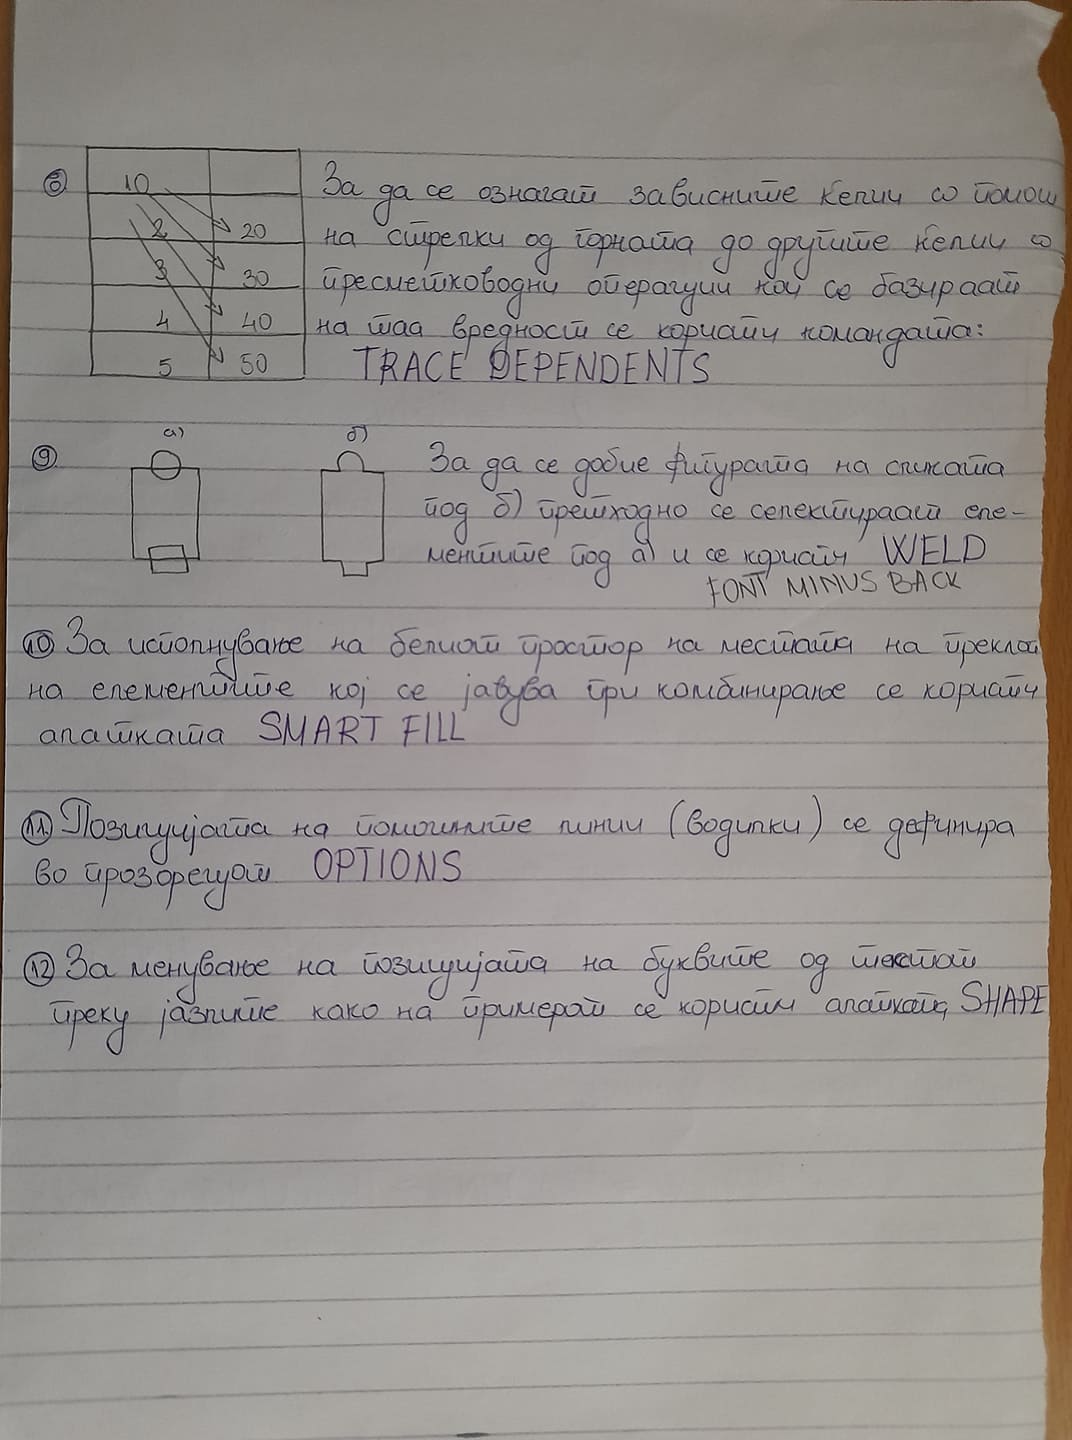 8 10 За да се означат зависните ќелии со помош
2 20 на стрелки од горната до другите ќелии со
3 30 пресметководни операции кои се базираат
4 40 на таа вредност се користи командата:
5 50 TRACE DEPENDENTS
9 а) б) За да се добие фигурата на сликата
под б) претходно се селектираат еле-
ментите под а) и се користи WELD
FONT MINUS BACK
10 За исполнување на белиот простор на местата на преклоп
на елементите кој се јавува при комбинирање се користи
алатката SMART FILL
11. Позицијата на помошните линии (водилки) се дефинира
во прозорецот OPTIONS
12 За менување на позицијата на буквите од текстот
преку јазлите како на примерот се користи алатката SHAPE